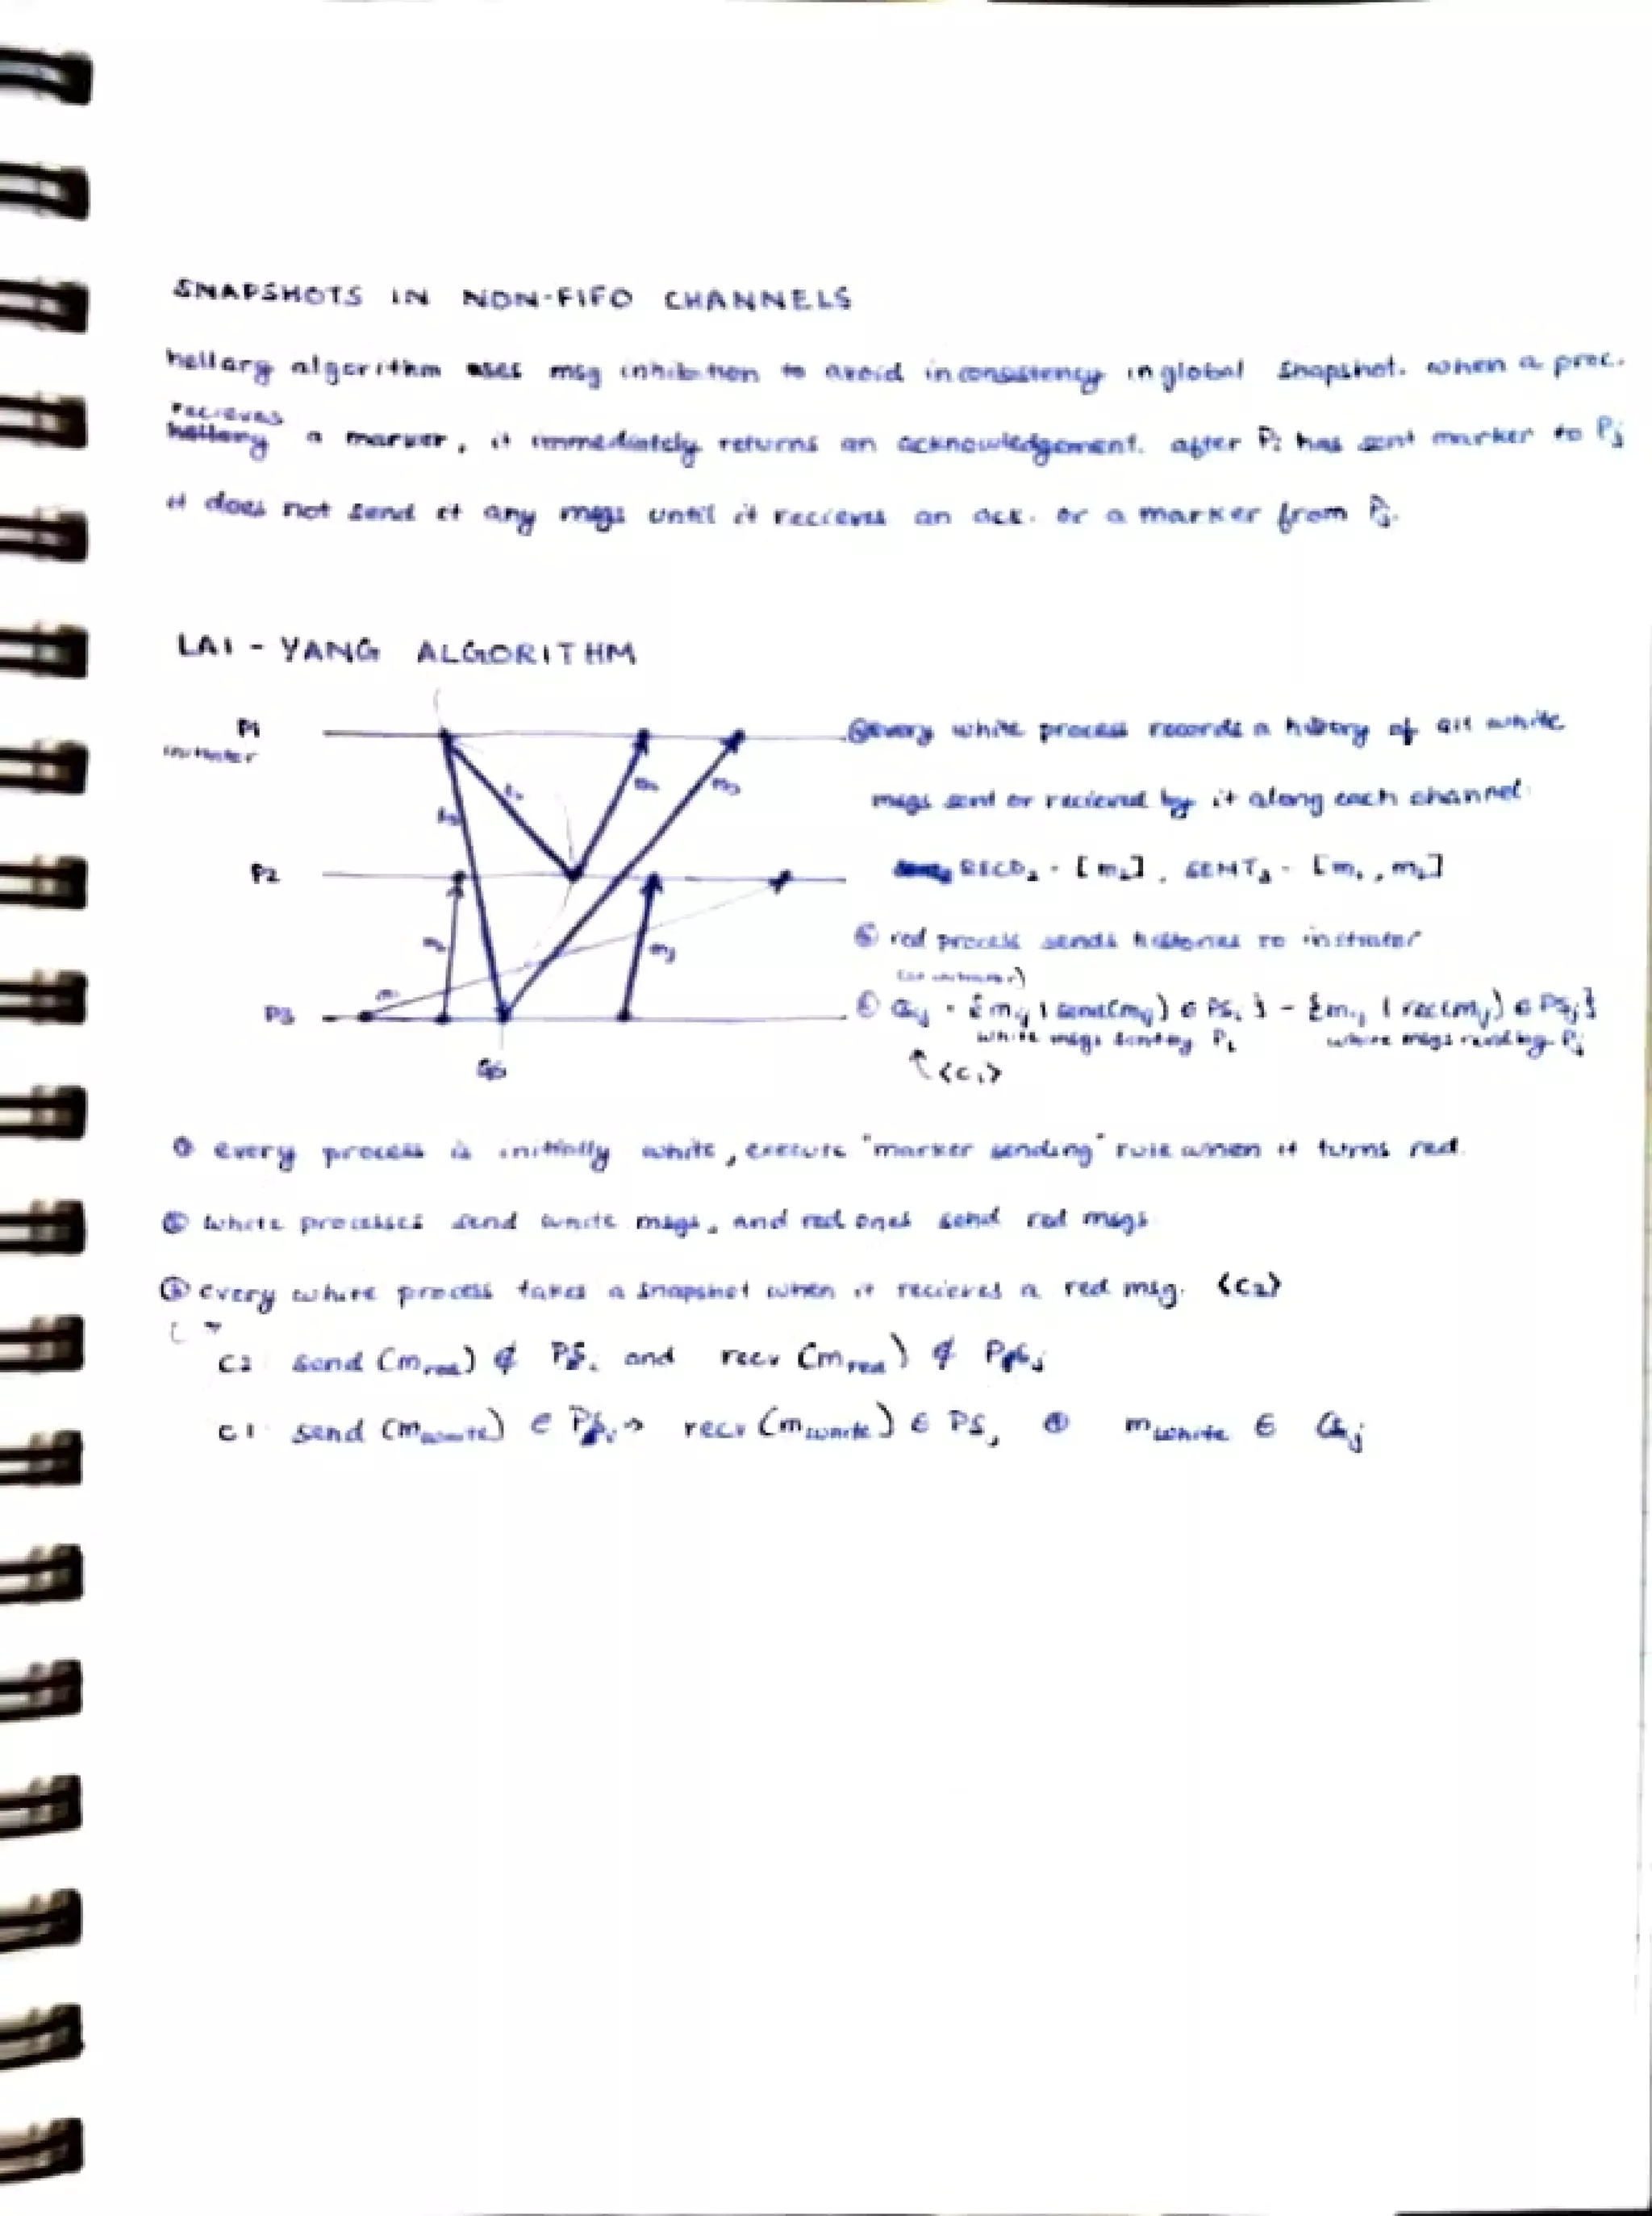 SNAPSHOTS IN NON-FIFO CHANNELS
hellary algorithm uses msg inhibition to avoid inconsistency in global snapshot. when a proc.
recieves
hellary a marker, it immediately returns an acknowledgement. after Pi has sent marker to Pj
it does not send it any msgs until it recieves an ack. or a marker from Pj.
LAI - YANG ALGORITHM
P1
initiator
P2
P3
GS
④ every white process records a history of all white
msgs sent or recieved by it along each channel
RECD2 - [m2], SENT3 - [m1, m2]
⑤ red process sends histories to initiator
⑥ Gij = {mij | send(mij) ∈ PSi} - {mij | rec(mij) ∈ PSj}
white msgs sent by Pi white msgs recvd by Pj
↑ <C1>
① every process is initially white, execute "marker sending" rule when it turns red.
② white processes send white msgs, and red ones send red msgs
③ every white process takes a snapshot when it recieves a red msg. <C2>
C2 send (mred) ∉ PSi and recv (mred) ∉ PSj
C1 send (mwhite) ∈ PSi → recv (mwhite) ∈ PSj ⊕ mwhite ∈ Gij